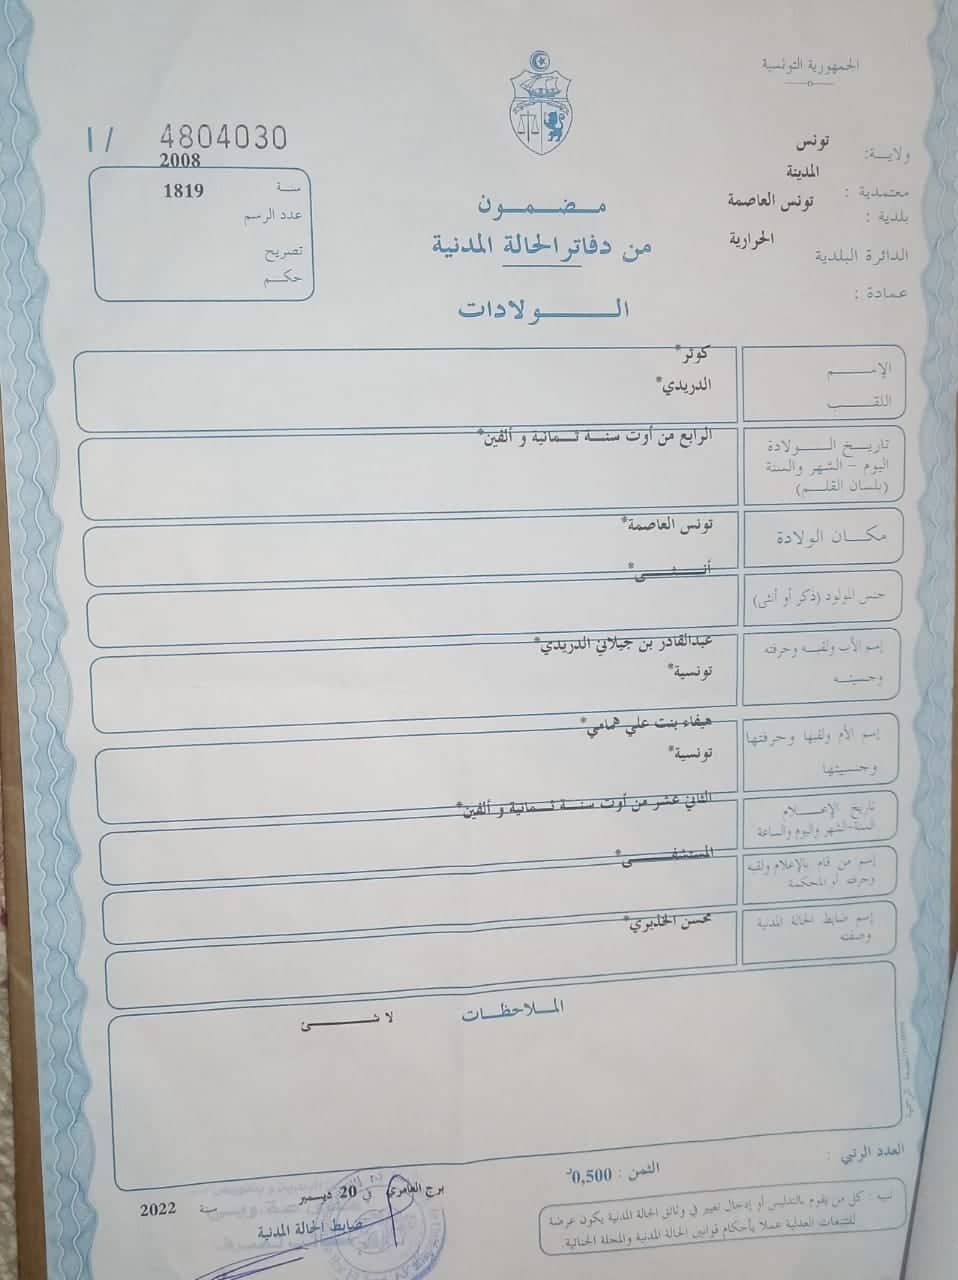 الجمهورية التونسية
ولاية: تونس
معتمدية : المدينة
بلدية : تونس العاصمة
الدائرة البلدية الحرايرية
عمادة :
4804030 /I
سنة 2008
عدد الرسم 1819
تصريح
حكم
مضمون
من دفاتر الحالة المدنية
الولادات
الإسم كوثر*
اللقب الدريدي*
تاريخ الولادة الرابع من أوت سنة ثمانية و ألفين*
اليوم - الشهر والسنة
(بلسان القلم)
مكان الولادة تونس العاصمة*
جنس المولود (ذكر أو أنثى) أنثى*
إسم الأب ولقبه وحرفته عبدالقادر بن جيلاني الدريدي*
وجنسيته تونسية*
إسم الأم ولقبها وحرفتها هيفاء بنت علي همامي*
وجنسيتها تونسية*
تاريخ الإعلام الثاني عشر من أوت سنة ثمانية و ألفين*
السنة-الشهر واليوم والساعة
إسم من قام بالإعلام ولقبه المستشفى*
وحرفته أو المحكمة
إسم ضابط الحالة المدنية محسن الخذيري*
وصفته
الملاحظات لا شئ
العدد الرتبي :
الثمن : 0,500د
برج العامري في 20 ديسمبر سنة 2022
ضابط الحالة المدنية
تنبيه : كل من يقوم بالتدليس أو إدخال تغيير في وثائق الحالة المدنية يكون عرضة
للتتبعات العدلية عملا بأحكام قوانين الحالة المدنية والمجلة الجنائية.